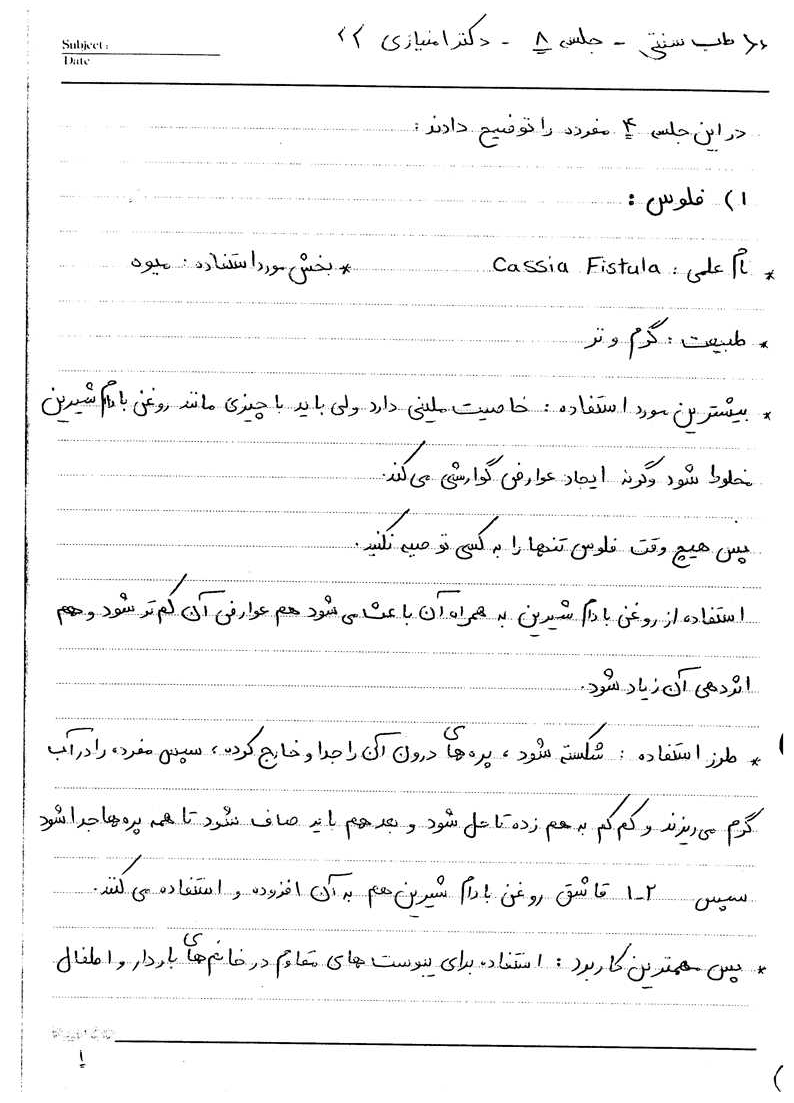 « طب سنتی - جلسه ۸ - دکتر امتیازی »
Subject:
Date
در این جلسه ۴ مفرده را توضیح دادند :
۱) فلوس :
* نام علمی : Cassia Fistula * بخش مورد استفاده : میوه
* طبیعت : گرم و تر
* بیشترین مورد استفاده : خاصیت ملینی دارد ولی باید با چیزی مانند روغن بادام شیرین
مخلوط شود وگرنه ایجاد عوارض گوارشی می کند.
پس هیچ وقت فلوس تنها را به کسی توصیه نکنید.
استفاده از روغن بادام شیرین به همراه آن باعث می شود هم عوارض آن کم تر شود و هم
اثردهی آن زیاد شود.
* طرز استفاده : شکسته شود ، پره های درون آن را جدا و خارج کرده ، سپس مفرده را در آب
گرم می ریزند و کم کم به هم زده تا حل شود و بعد هم باید صاف شود تا همه پره ها جدا شود
سپس ۱-۲ قاشق روغن بادام شیرین هم به آن افزوده و استفاده می کنند.
* پس مهمترین کاربرد : استفاده برای یبوست های مقاوم در خانم های باردار و اطفال
۱